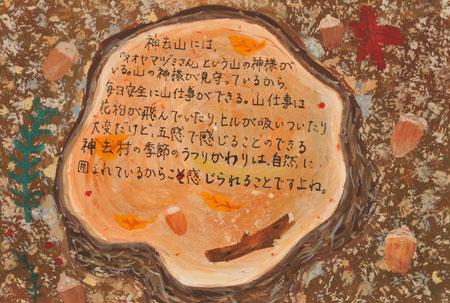 神去山には、
「オオヤマヅミさん」という山の神様が
いる。山の神様が見守っているから、
毎日安全に山仕事ができる。山仕事は
花粉が飛んでいたり、ヒルが吸いついたり
大変だけど、五感で感じることのできる
神去村の季節のうつりかわりは、自然に
囲まれているからこそ感じられることですよね。